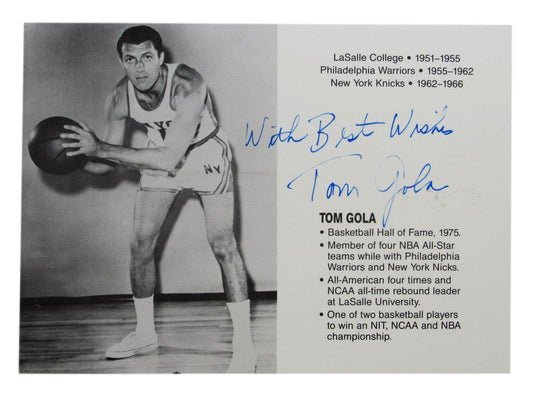 LaSalle College • 1951–1955
Philadelphia Warriors • 1955–1962
New York Knicks • 1962–1966
With Best Wishes
Tom Gola
TOM GOLA
• Basketball Hall of Fame, 1975.
• Member of four NBA All-Star
teams while with Philadelphia
Warriors and New York Knicks.
• All-American four times and
NCAA all-time rebound leader
at LaSalle University.
• One of two basketball players
to win an NIT, NCAA and NBA
championship.
NY